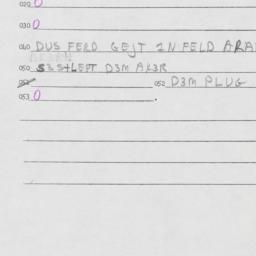 020 0
030 0
040 DUS FERD GEJT IN FELD ARA
050 S3S+LEFT D3M AK3R
051 052 D3M PLUG
053 0 .